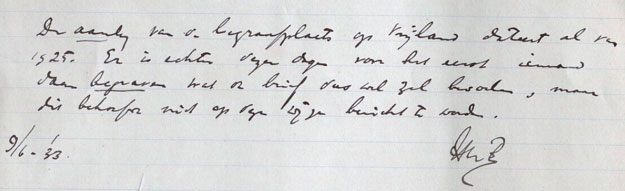 De aanleg van de begraafplaats op Vrijland dateert al van
1925. Er is echter dezer dagen voor het eerst iemand
daar begraven wat de brief dus wel zal bevatten, maar
dit behoefde niet op deze wijze bericht te worden.
9/6-'33.